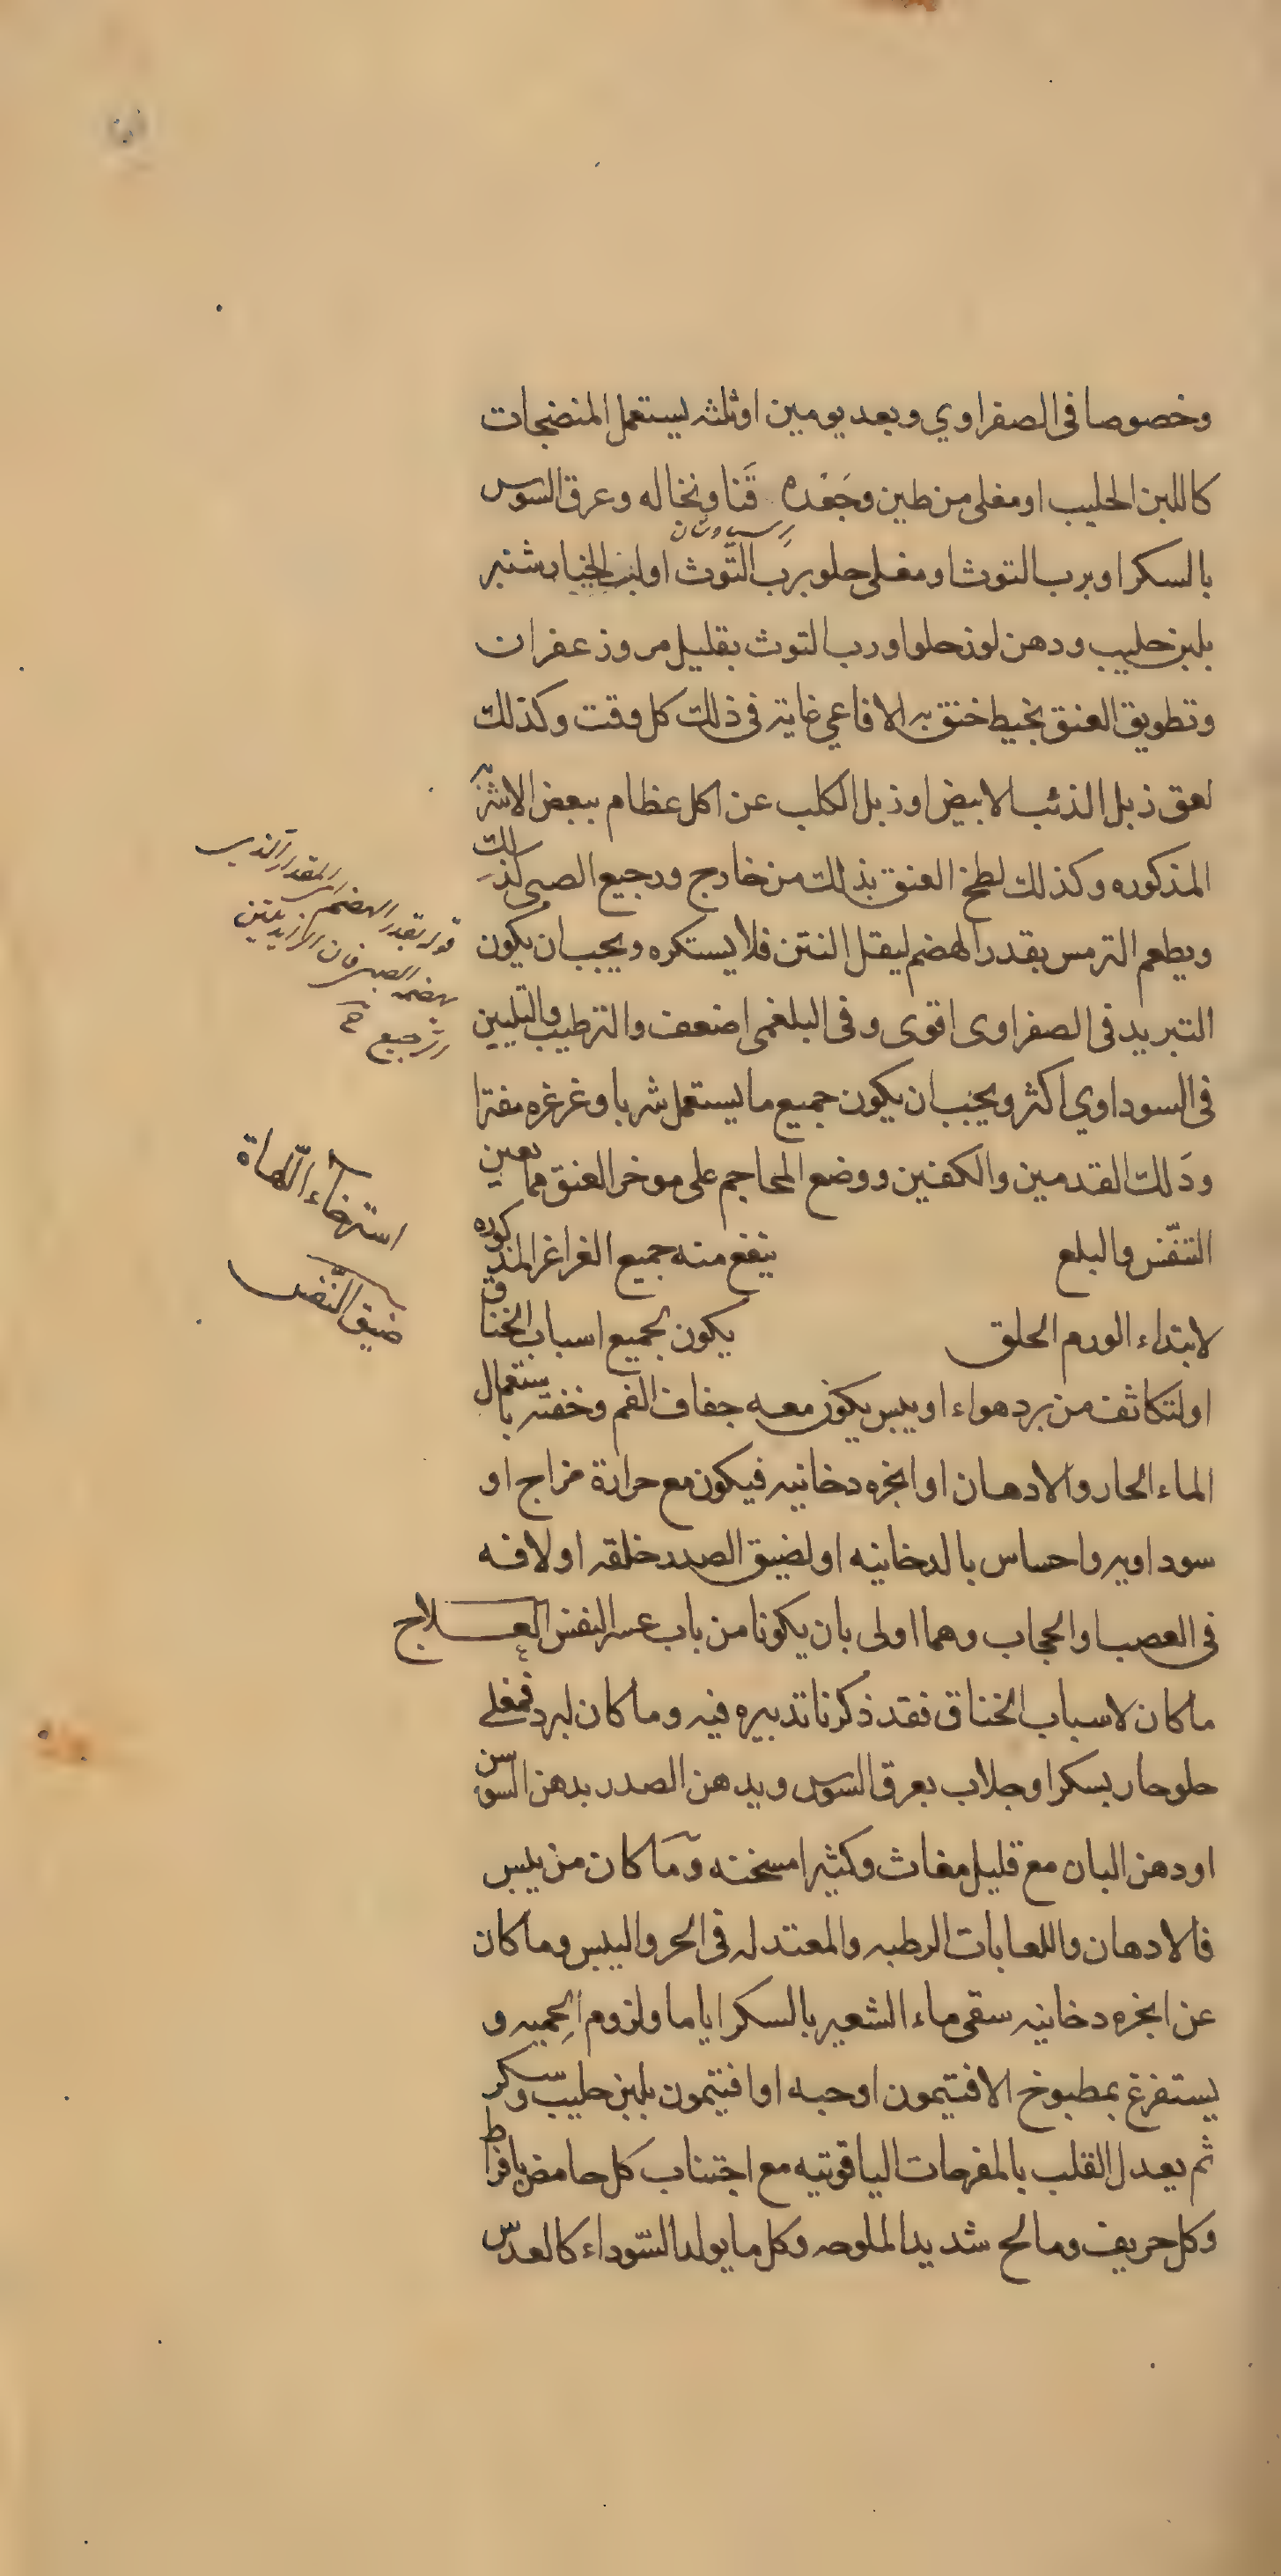 وخصوصا فى الصفراوي وبعد يومين او ثلثه يستعمل المنضجات
كاللبن الحليب او مغلى من طين وجَعْده قَنا ونخاله وعرق السوس
رسياوشان
بالسكر او برب التوث او مغلى حلو برَب التّوث او لب الخيار شنبر
بلبن حليب ودهن لوز حلو او رب التوث بقليل مر وزعفران
وتطويق العنق بخيط خنق به الافاعي غاية فى ذلك كل وقت وكذلك
لعق زبل الذئب الابيض او زبل الكلب عن اكل عظام ببعض الاشربه
المذكوره وكذلك لطخ العنق بذلك من خارج ورجيع الصبى كذلك
ويطعم الترمس بقدر الهضم ليقل النتن فلا يستكره ويجب ان يكون
التبريد فى الصفراوى اقوى وفى البلغمى اضعف والترطيب والتليين
فى السوداوي اكثر ويجب ان يكون جميع ما يستعمل شربا وغرغره مفترا
ودَلك القدمين والكفين ووضع المحاجم على موخر العنق مما يعين
التنفّس والبلع ينفع منه جميع الغراغر المذكوره
لابتداء الورم الحلق يكون لجميع اسباب الخناق
او لتكاثف من برد هواء او يبس يكون معه جفاف الفم وخفته باستعمال
الماء الحار والادهان او ابخره دخانيه فيكون مع حرارة مزاج او
سوداويه واحساس بالدخانيه او لضيق الصدر خلقه او لافه
فى العصب او الحجاب وهما اولى بان يكونا من باب عسر النفس العلاج
ما كان لاسباب الخناق فقد ذكرنا تدبيره فيه وما كان لبرد فمغلى
حلو حار بسكر او جلاب بعرق السوس ويدهن الصدر بدهن السوسن
او دهن البان مع قليل مغاث وكثيرا مسخنه وما كان من يبس
فالادهان واللعابات الرطبه والمعتدله فى الحر واليبس وما كان
عن ابخره دخانيه سقى ماء الشعير بالسكر اياما ولزوم الحِميه و
يستفرغ بمطبوخ الافتيمون او حبه او افتيمون بلبن حليب وسكر
ثم يعدل القلب بالمفرحات الياقوتيه مع اجتناب كل حامض بافراط
وكل حريف ومالح شديد الملوحه وكل ما يولد السّوداء كالعدس
قوله بقدر الهضم اى المقدار الذى
يهضمه الصبى فان الزايد ينتن
الرجيع
استرخاء اللّهاة
ضيق النَّفَس